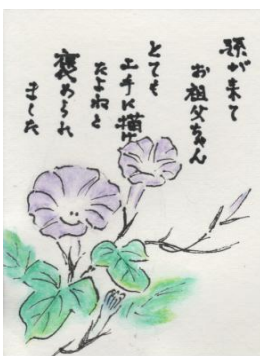 孫が来て
お祖父ちゃん
とても
上手に描け
たよねと
褒められ
ました